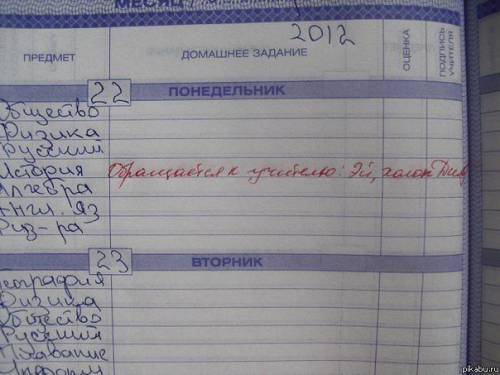 МЕСЯЦ
2012
ПРЕДМЕТ ДОМАШНЕЕ ЗАДАНИЕ ОЦЕНКА ПОДПИСЬ УЧИТЕЛЯ
22 ПОНЕДЕЛЬНИК
Общество
Физика
Русский
История Обращается к учителю: Эй, холоп
Алгебра
Англ. яз
Физ-ра
23 ВТОРНИК
География
Физика
Общество
Русский
Плавание
Информ
pikabu.ru